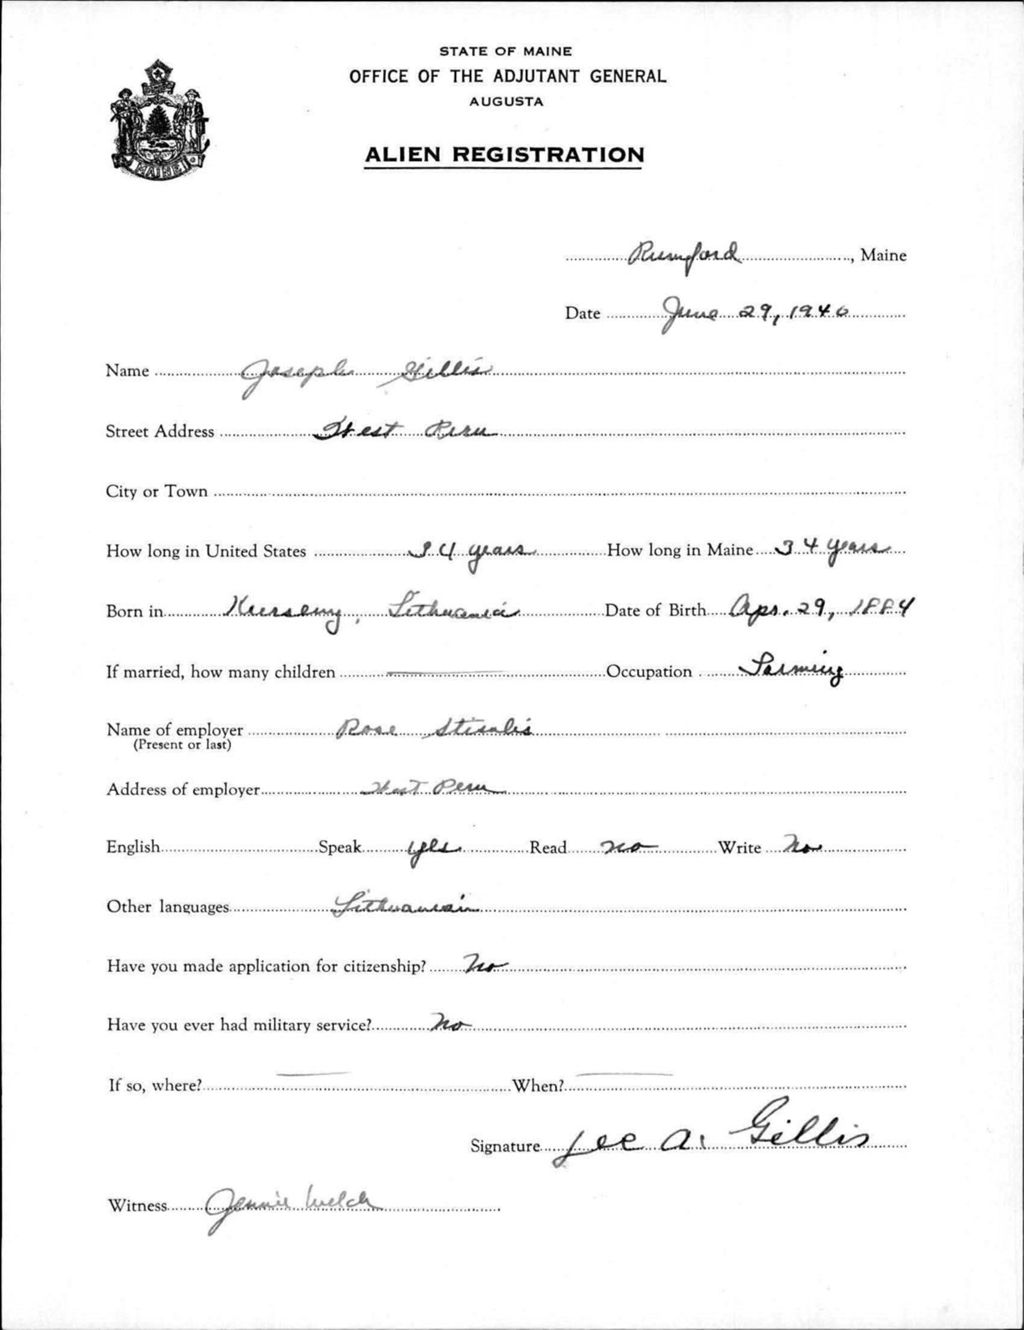 STATE OF MAINE
OFFICE OF THE ADJUTANT GENERAL
AUGUSTA
ALIEN REGISTRATION
MAINE
Rumford, Maine
Date June 29, 1940
Name Joseph Gillis
Street Address West Peru
City or Town
How long in United States 34 years How long in Maine 34 years
Born in Lithuania Date of Birth Apr. 29, 1884
If married, how many children Occupation Farming
Name of employer Rose
(Present or last)
Address of employer West Peru
English Speak yes Read no Write No
Other languages Lithuanian
Have you made application for citizenship? No
Have you ever had military service? No
If so, where? When?
Signature A. Gillis
Witness Jennie Welch